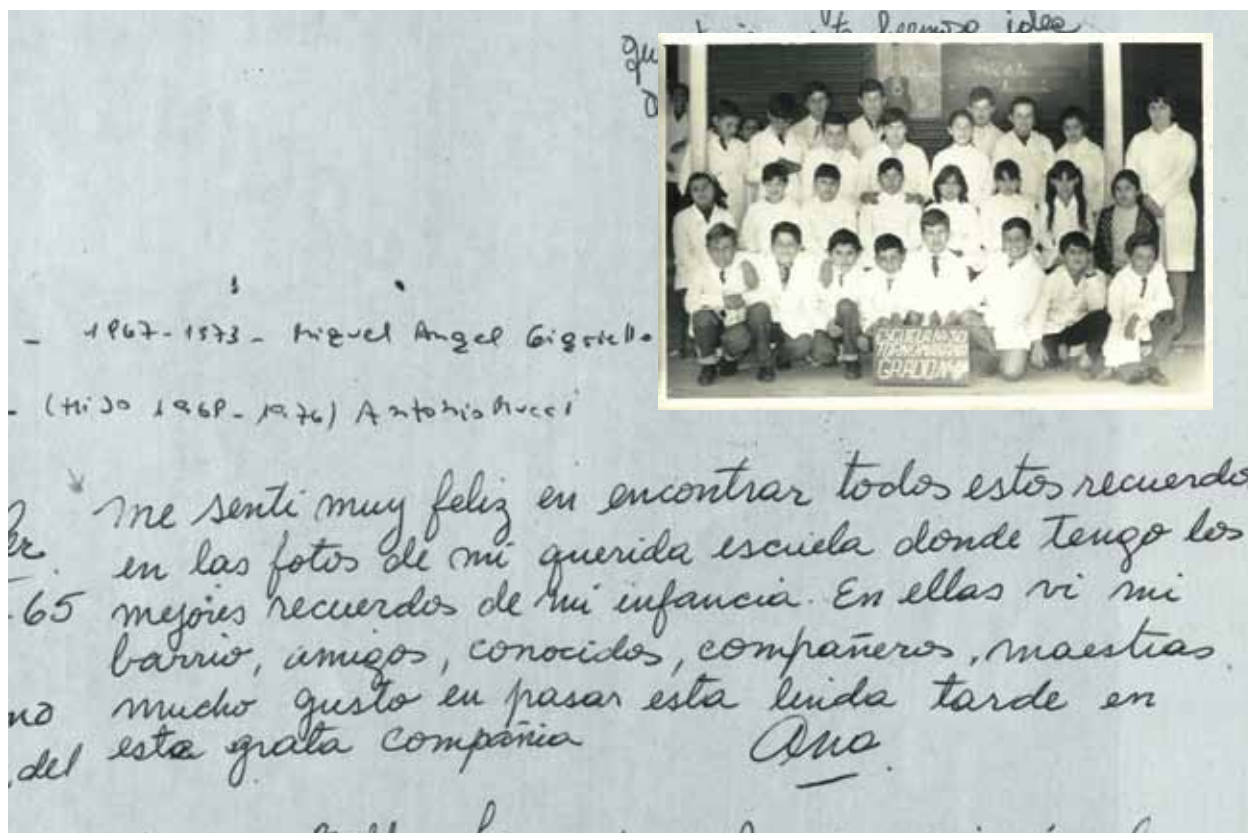 hermosa idea
- 1967-1973- Miguel Angel
- (Hijo 1968-1976) Antonio Mucci
me sentí muy feliz en encontrar todos estos recuerdo
en las fotos de mi querida escuela donde tengo los
65 mejores recuerdos de mi infancia. En ellas vi mi
barrio, amigos, conocidos, compañeros, maestras.
no mucho gusto en pasar esta linda tarde en
del esta grata compañia Ana
ESCUELA No 30
GRADO